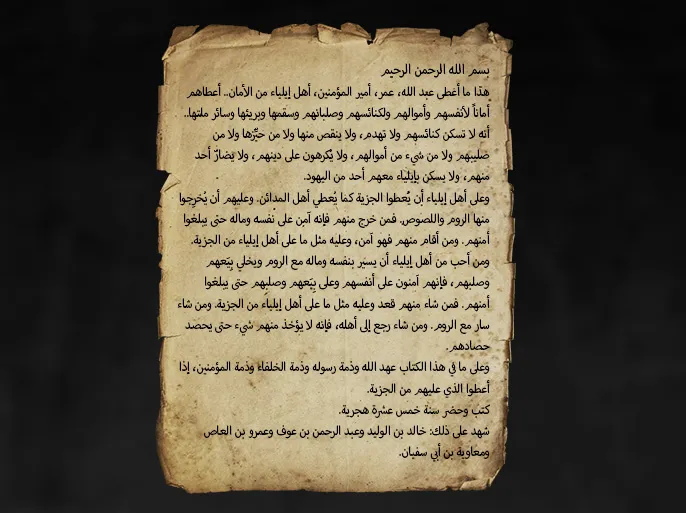 بسم الله الرحمن الرحيم
هذا ما أعطى عبد الله، عمر، أمير المؤمنين، أهل إيلياء من الأمان.. أعطاهم
أماناً لأنفسهم وأموالهم ولكنائسهم وصلبانهم وسقمها وبريئها وسائر ملتها..
أنه لا تسكن كنائسهم ولا تهدم، ولا ينقص منها ولا من حيّزها ولا من
صليبهم ولا من شيء من أموالهم، ولا يُكرهون على دينهم، ولا يضارّ أحد
منهم، ولا يسكن بإيلياء معهم أحد من اليهود.
وعلى أهل إيلياء أن يُعطوا الجزية كما يُعطي أهل المدائن. وعليهم أن يُخرِجوا
منها الروم واللصوص. فمن خرج منهم فإنه آمن على نفسه وماله حتى يبلغوا
أمنهم. ومن أقام منهم فهو آمن، وعليه مثل ما على أهل إيلياء من الجزية.
ومن أحب من أهل إيلياء أن يسير بنفسه وماله مع الروم ويخلي بِيَعهم
وصلبهم، فإنهم آمنون على أنفسهم وعلى بِيَعهم وصلبهم حتى يبلغوا
أمنهم. فمن شاء منهم قعد وعليه مثل ما على أهل إيلياء من الجزية. ومن شاء
سار مع الروم. ومن شاء رجع إلى أهله، فإنه لا يؤخذ منهم شيء حتى يحصد
حصادهم.
وعلى ما في هذا الكتاب عهد الله وذمة رسوله وذمة الخلفاء وذمة المؤمنين، إذا
أعطوا الذي عليهم من الجزية.
كتب وحضر سنة خمس عشرة هجرية.
شهد على ذلك: خالد بن الوليد وعبد الرحمن بن عوف وعمرو بن العاص
ومعاوية بن أبي سفيان.